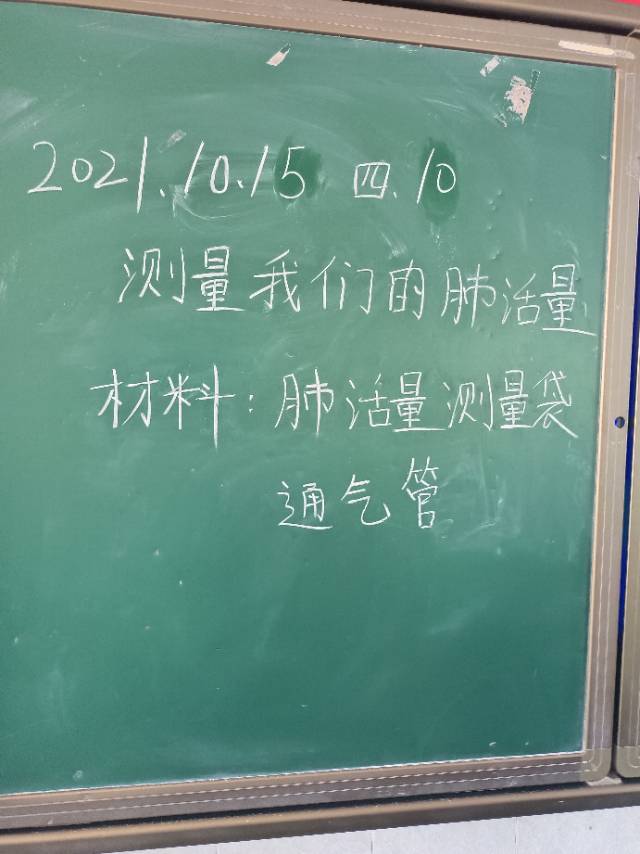 2021.10.15 四.10
测量我们的肺活量
材料：肺活量测量袋
通气管